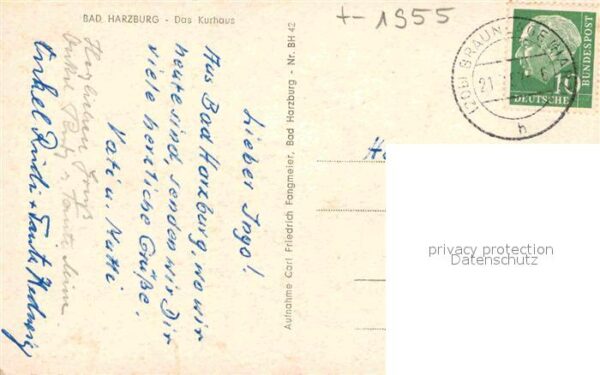 BAD HARZBURG - Das Kurhaus
+-1955
Lieber Ingo!
Aus Bad Harzburg, wo wir
heute sind, senden wir Dir
viele herzliche Grüße.
Vati u. Mutti
Herzlichen Gruß
Onkel
u. Tante
Onkel Rudi + Tante Hedwig
Aufnahme Carl Friedrich Fangmeier, Bad Harzburg - Nr. BH 42
(20b) BRAUN
21.
h
10
DEUTSCHE
BUNDESPOST
privacy protection
Datenschutz